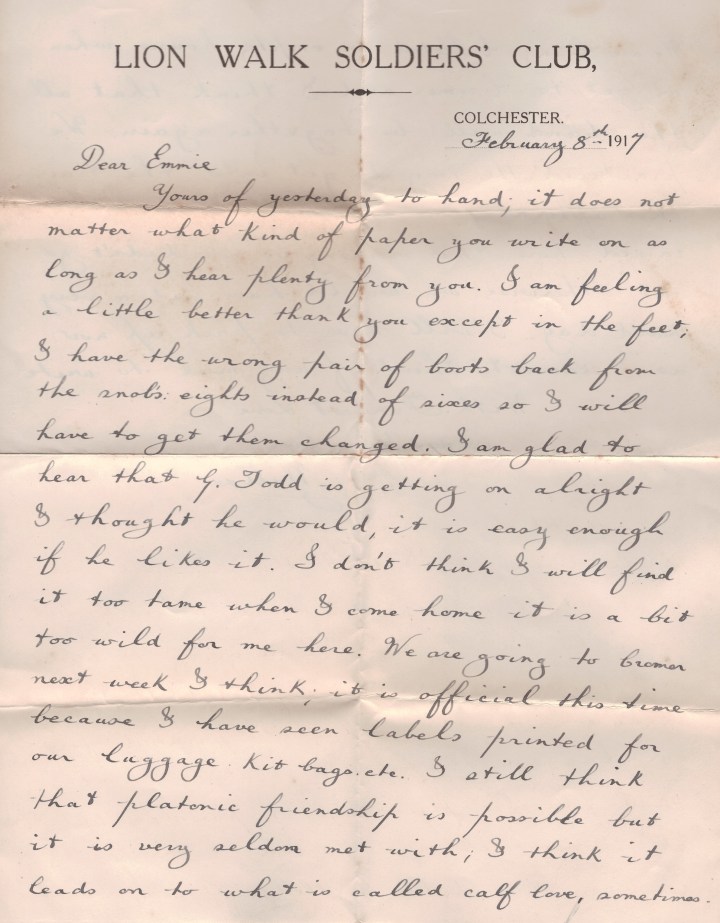 LION WALK SOLDIERS' CLUB,
COLCHESTER.
February 8th 1917
Dear Emmie
Yours of yesterday to hand; it does not
matter what kind of paper you write on as
long as I hear plenty from you. I am feeling
a little better thank you except in the feet;
I have the wrong pair of boots back from
the snob's: eights instead of sixes so I will
have to get them changed. I am glad to
hear that G. Todd is getting on alright
I thought he would, it is easy enough
if he likes it. I don't think I will find
it too tame when I come home it is a bit
too wild for me here. We are going to Cromer
next week I think; it is official this time
because I have seen labels printed for
our luggage. Kit bags. etc. I still think
that platonic friendship is possible but
it is very seldom met with; I think it
leads on to what is called calf love, sometimes.